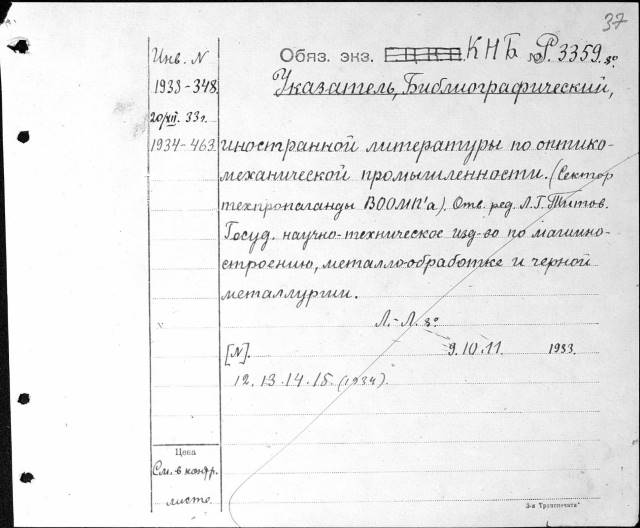 37
Инв. N
Обяз. экз. ЕЦКП. КНБ № Р.3359. 8°.
1933-348.
Указатель, Библиографический,
20/XII. 33 г.
1934-463.
иностранной литературы по оптико-
механической промышленности. (Сектор
техпропаганды ВООМП'а). Отв. ред. Л.Г. Титов.
Госуд. научно-техническое изд-во по машино-
строению, металлообработке и черной
металлургии.
Л.-Л. 8°.
[N]. 9. 10. 11. 1933.
12. 13. 14. 15. (1934).
Цена
См. в контр.
листе.
3-я "Транспечати"